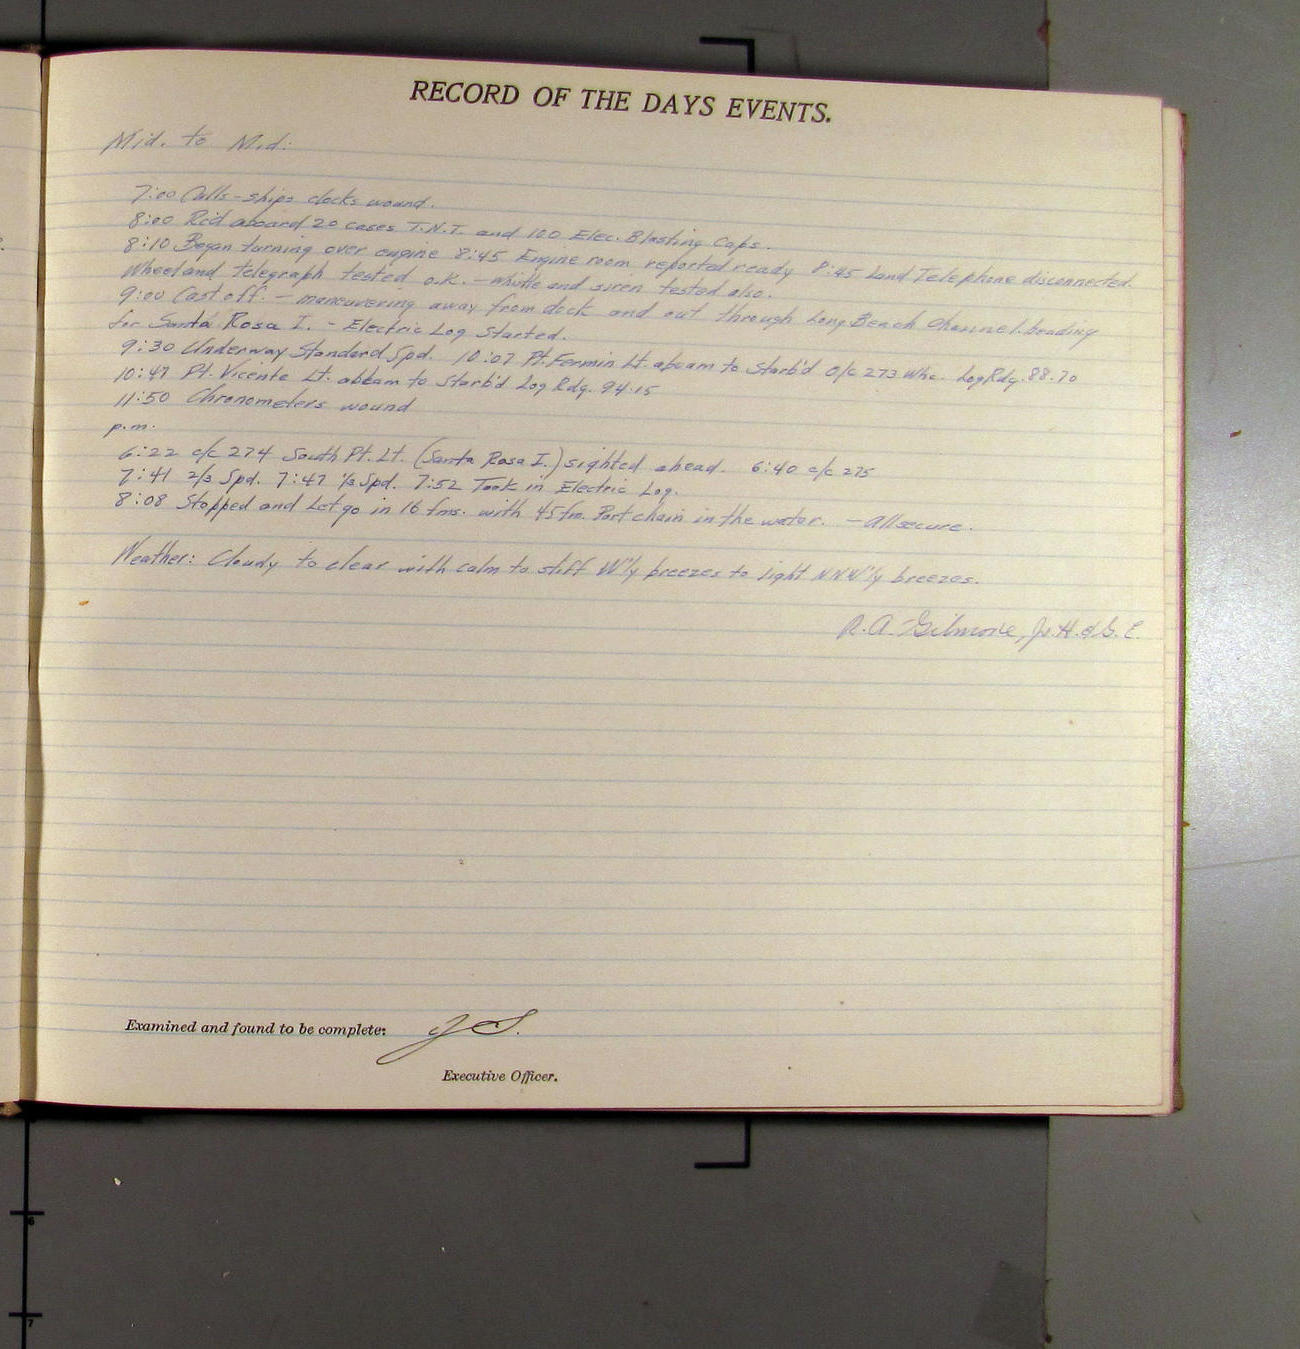 RECORD OF THE DAYS EVENTS.
Mid. to Mid:
7:00 Calls - ships clocks wound.
8:00 Rcd aboard 20 cases T.N.T. and 100 Elec. Blasting Caps.
8:10 Began turning over engine 8:45 Engine room reported ready 8:45 Land Telephone disconnected.
Wheel and telegraph tested o.K. - whistle and siren tested also.
9:00 Cast off. - maneuvering away from dock and out through Long Beach Channel. heading
for Santa Rosa I. - Electric Log Started.
9:30 Underway Standard Spd. 10:07 Pt. Fermin Lt. abeam to Starb'd c/c 273 Whc. Log Rdg. 88.70
10:47 Pt. Vicente Lt. abeam to Starb'd Log Rdg. 94.15
11:50 Chronometers wound
p.m.
6:22 c/c 274 South Pt. Lt. (Santa Rosa I.) sighted ahead. 6:40 c/c 275
7:41 2/3 Spd. 7:47 1/3 Spd. 7:52 Took in Electric Log.
8:08 Stopped and Let go in 16 fms. with 45 fm. Port chain in the water. - All secure.
Weather: Cloudy to clear with calm to stiff W'ly breezes to light NNW'ly breezes.
R. A. Gilmore, Jr. H. & G. E.
Examined and found to be complete:
Executive Officer.
6
7